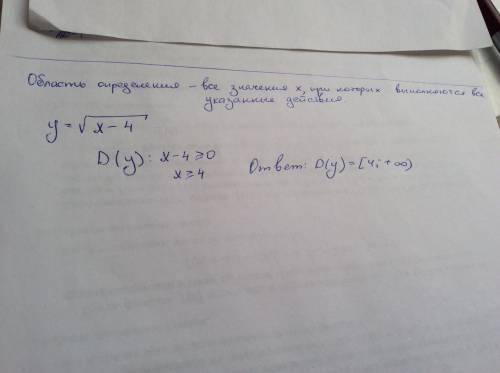 Область определения – все значения x, при которых выполняются все
указанные действия.
y = √x-4
D(y): x-4≥0
x≥4
Ответ: D(y) = [4; +∞)